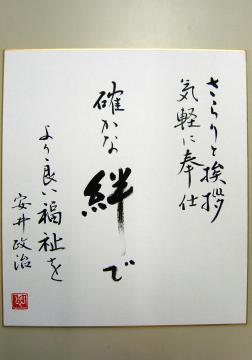 さらりと挨拶
気軽に奉仕
確かな絆で
より良い福祉を
安井政治